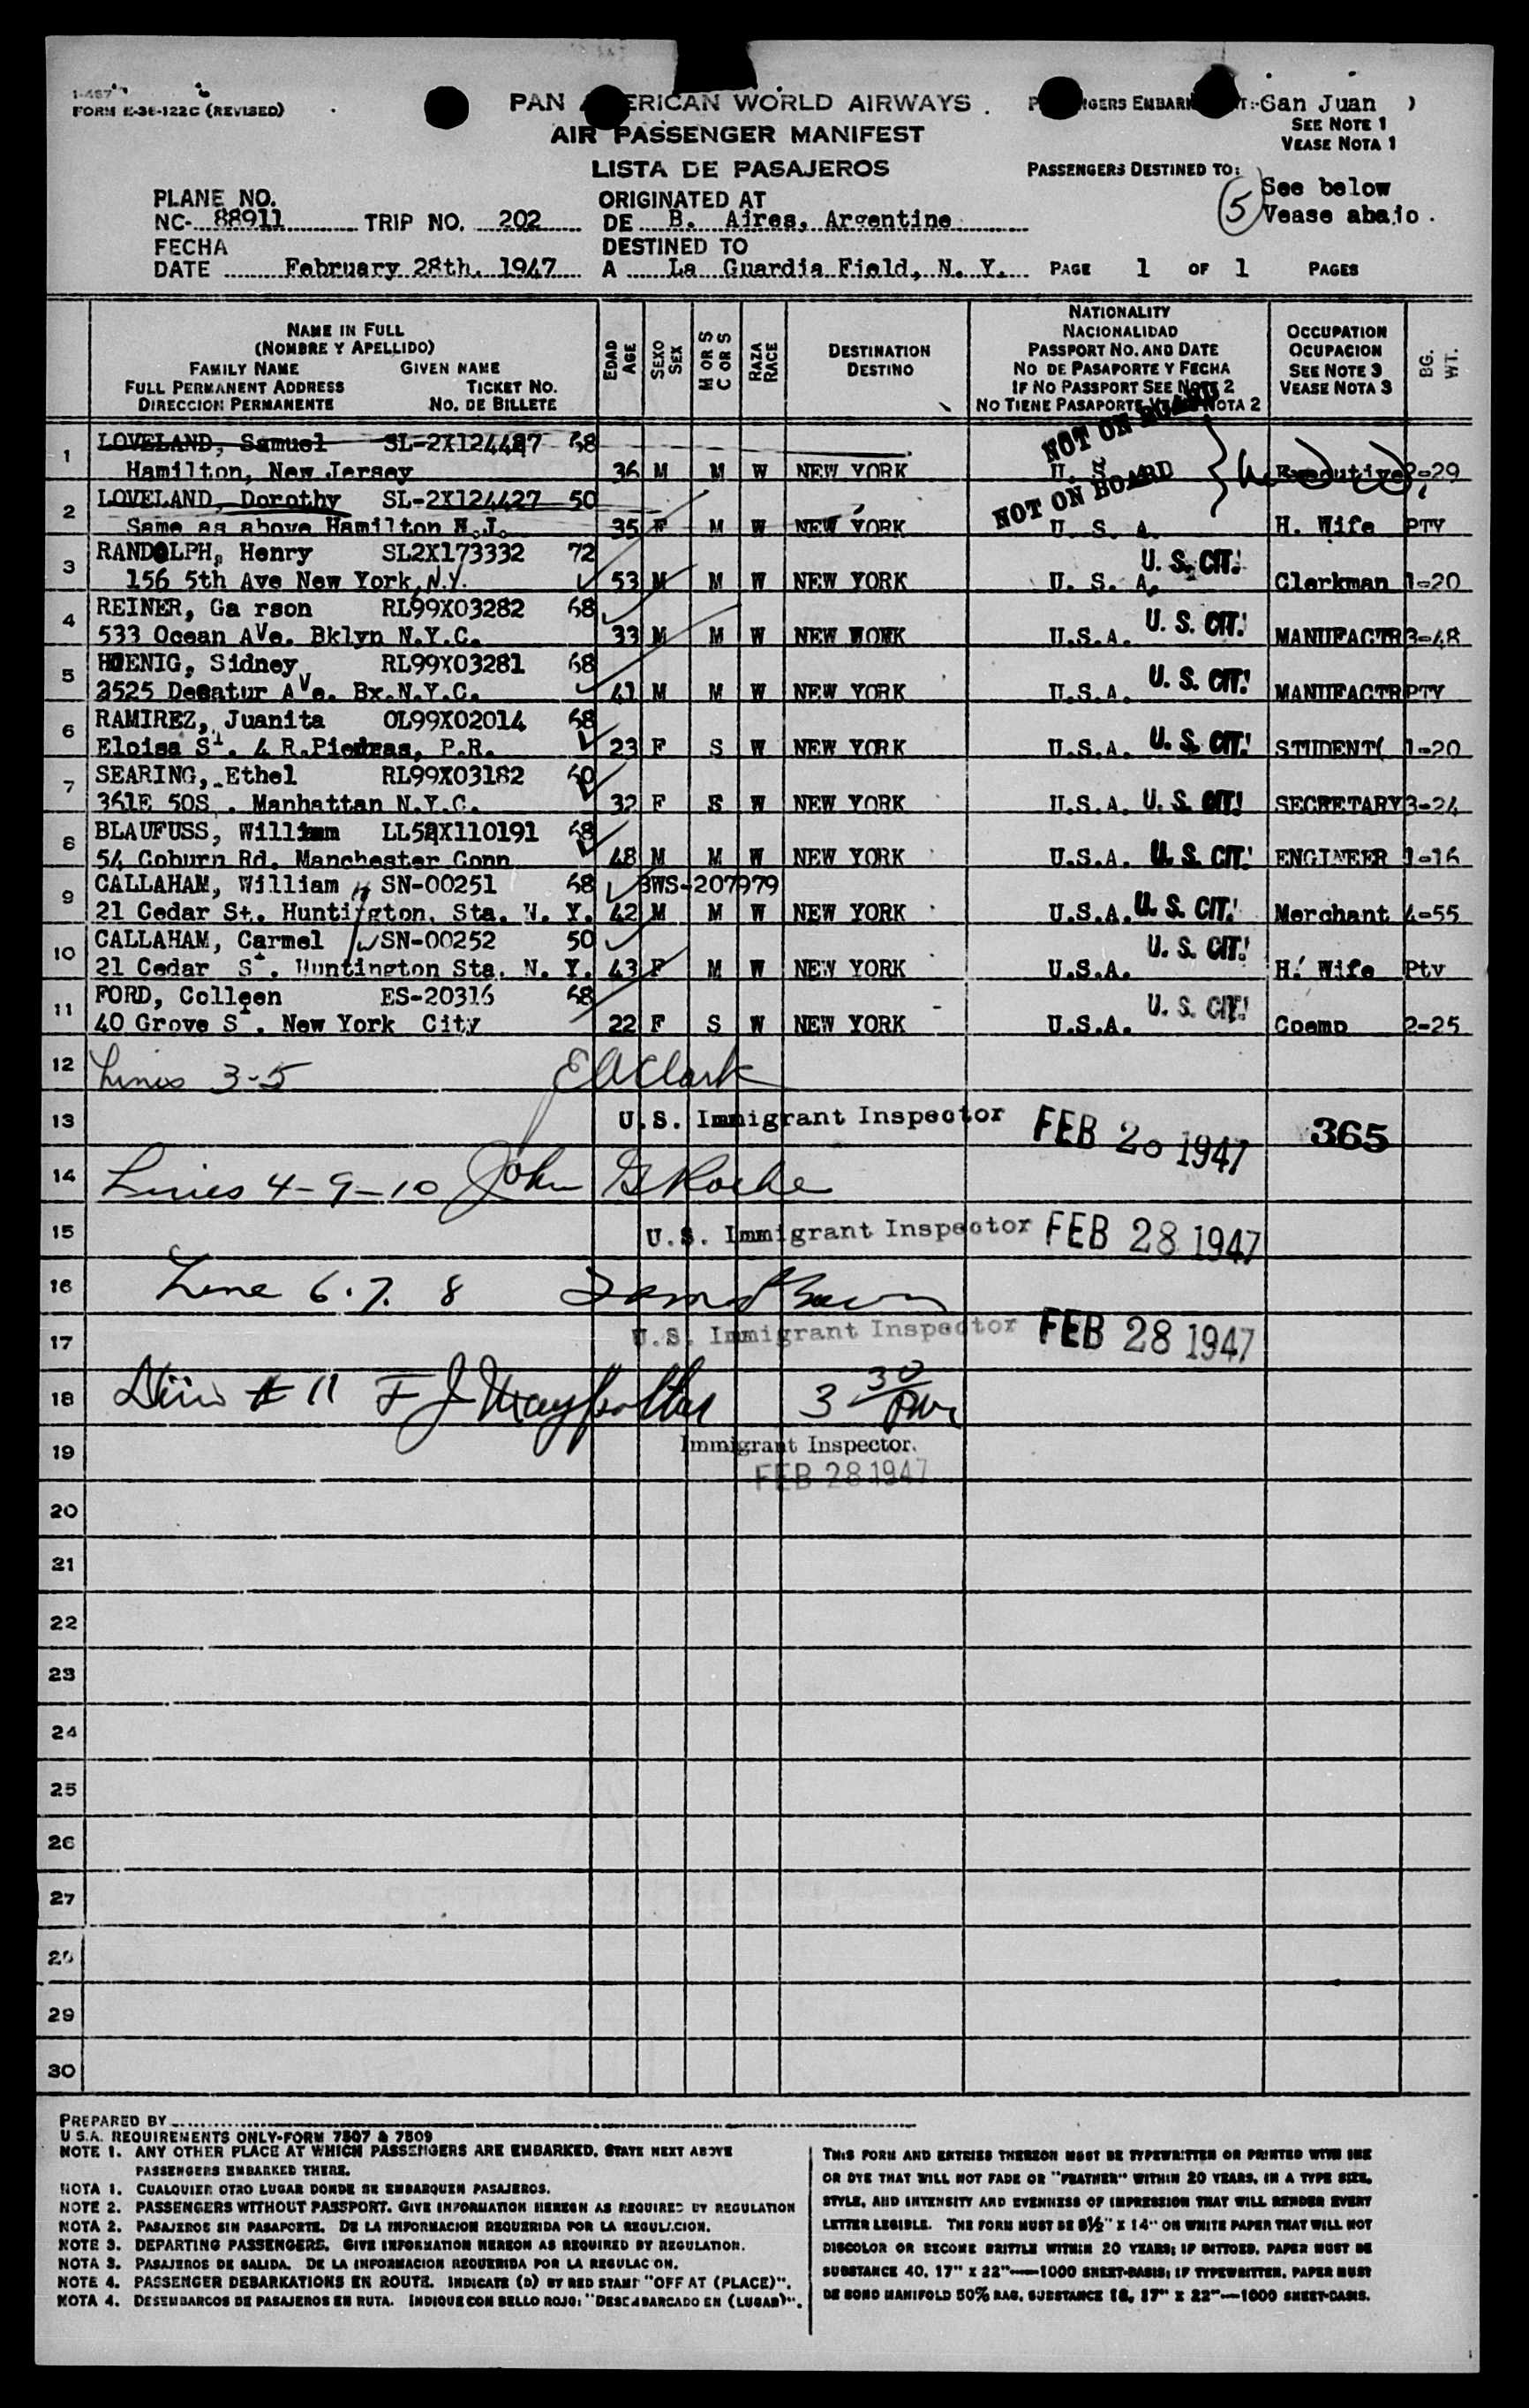 FORM E-36-122C (REVISED)
PAN ERICAN WORLD AIRWAYS
AIR PASSENGER MANIFEST
LISTA DE PASAJEROS
San Juan )
SEE NOTE 1
VEASE NOTA 1
PASSENGERS DESTINED TO:
See below
Vease abajo
5
PLANE NO.
NC- 88911 TRIP NO. 202
FECHA
DATE February 28th. 1947
ORIGINATED AT
DE B. Aires, Argentine
DESTINED TO
A La Guardia Field, N. Y.
PAGE 1 OF 1 PAGES
NAME IN FULL
(NOMBRE Y APELLIDO)
FAMILY NAME GIVEN NAME
FULL PERMANENT ADDRESS TICKET NO.
DIRECCION PERMANENTE NO. DE BILLETE
EDAD
AGE
SEXO
SEX
M OR S
C OR S
RAZA
RACE
DESTINATION
DESTINO
NATIONALITY
NACIONALIDAD
PASSPORT NO. AND DATE
NO DE PASAPORTE Y FECHA
IF NO PASSPORT SEE NOTE 2
NO TIENE PASAPORTE NOTA 2
OCCUPATION
OCUPACION
SEE NOTE 3
VEASE NOTA 3
BG.
WT.
1 LOVELAND, Samuel SL-2X124427 68 NOT ON BOARD
Hamilton, New Jersey 36 M M W NEW YORK U. S. Executive 2-29
2 LOVELAND, Dorothy SL-2X124427 50 NOT ON BOARD
Same as above Hamilton N.J. 35 F M W NEW YORK U. S. A. H. Wife PTY
3 RANDOLPH, Henry SL2X173332 72 U. S. CIT.
156 5th Ave New York, N.Y. 53 M M W NEW YORK U. S. A. Clerkman 1-20
4 REINER, Ga rson RL99X03282 68 U. S. CIT.
533 Ocean Ave. Bklyn N.Y.C. 33 M M W NEW WOWK U.S.A. MANUFACTR 3-48
5 HOENIG, Sidney RL99X03281 68 U. S. CIT.
3525 Decatur Ave. Bx.N.Y.C. 41 M M W NEW YORK U.S.A. MANUFACTR PTY
6 RAMIREZ, Juanita OL99X02014 68
Eloisa St. 4 R.Piedras, P.R. 23 F S W NEW YORK U.S.A. U. S. CIT. STUDENT( 1-20
7 SEARING, Ethel RL99X03182 60
361E 50S . Manhattan N.Y.C. 32 F S W NEW YORK U.S.A. U. S. CIT. SECRETARY 3-24
8 BLAUFUSS, William LL52X110191 68
54 Coburn Rd. Manchester Conn 48 M M W NEW YORK U.S.A. U. S. CIT. ENGINEER 1-16
9 CALLAHAM, William H SN-00251 68 BWS-207979
21 Cedar St. Huntington. Sta. N. Y. 42 M M W NEW YORK U.S.A. U. S. CIT. Merchant 4-55
10 CALLAHAM, Carmel W SN-00252 50 U. S. CIT.
21 Cedar St. Huntington Sta. N. Y. 43 F M W NEW YORK U.S.A. H. Wife Pty
11 FORD, Colleen ES-20316 68 U. S. CIT.
40 Grove St. New York City 22 F S W NEW YORK U.S.A. Coemp 2-25
12 Lines 3-5 E A Clark
13 U.S. Immigrant Inspector FEB 20 1947 365
14 Lines 4-9-10 John G Roche
15 U.S. Immigrant Inspector FEB 28 1947
16 Line 6.7. 8
17 U.S. Immigrant Inspector FEB 28 1947
18 # 11 F J 3 30 PM
19 Immigrant Inspector.
FEB 28 1947
20
21
22
23
24
25
26
27
28
29
30
PREPARED BY
U.S.A. REQUIREMENTS ONLY-FORM 7507 & 7509
NOTE 1. ANY OTHER PLACE AT WHICH PASSENGERS ARE EMBARKED, STATE NEXT ABOVE
PASSENGERS EMBARKED THERE.
NOTA 1. CUALQUIER OTRO LUGAR DONDE SE EMBARQUEN PASAJEROS.
NOTE 2. PASSENGERS WITHOUT PASSPORT. GIVE INFORMATION HEREON AS REQUIRED BY REGULATION
NOTA 2. PASAJEROS SIN PASAPORTE. DE LA INFORMACION REQUERIDA POR LA REGULACION.
NOTE 3. DEPARTING PASSENGERS. GIVE INFORMATION HEREON AS REQUIRED BY REGULATION.
NOTA 3. PASAJEROS DE SALIDA. DE LA INFORMACION REQUERIDA POR LA REGULACION.
NOTE 4. PASSENGER DEBARKATIONS EN ROUTE. INDICATE (D) BY RED STAMP "OFF AT (PLACE)".
NOTA 4. DESEMBARCOS DE PASAJEROS EN RUTA. INDIQUE CON SELLO ROJO: "DESEMBARCADO EN (LUGAR)".
THIS FORM AND ENTRIES THEREON MUST BE TYPEWRITTEN OR PRINTED WITH INK
OR DYE THAT WILL NOT FADE OR "FEATHER" WITHIN 20 YEARS, IN A TYPE SIZE,
STYLE, AND INTENSITY AND EVENNESS OF IMPRESSION THAT WILL RENDER EVERY
LETTER LEGIBLE. THE FORM MUST BE 8½" X 14" ON WHITE PAPER THAT WILL NOT
DISCOLOR OR BECOME BRITTLE WITHIN 20 YEARS; IF DITTOED, PAPER MUST BE
SUBSTANCE 40, 17" X 22"—1000 SHEET-BASIS; IF TYPEWRITTEN, PAPER MUST
BE BOND MANIFOLD 50% RAG, SUBSTANCE 16, 17" X 22"—1000 SHEET-BASIS.